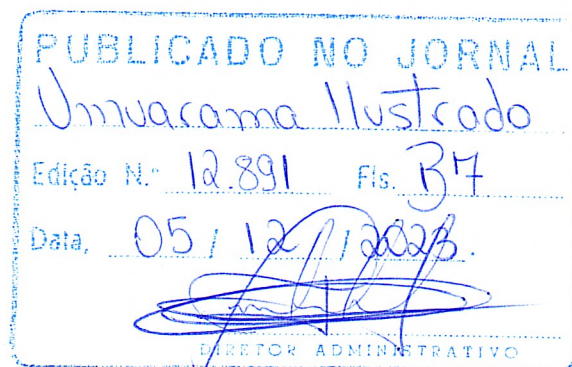 PUBLICADO NO JORNAL
Umuarama Ilustrado
Edição N.º 12.891 Fls. B7
Data, 05 / 12 / 2023.
DIRETOR ADMINISTRATIVO